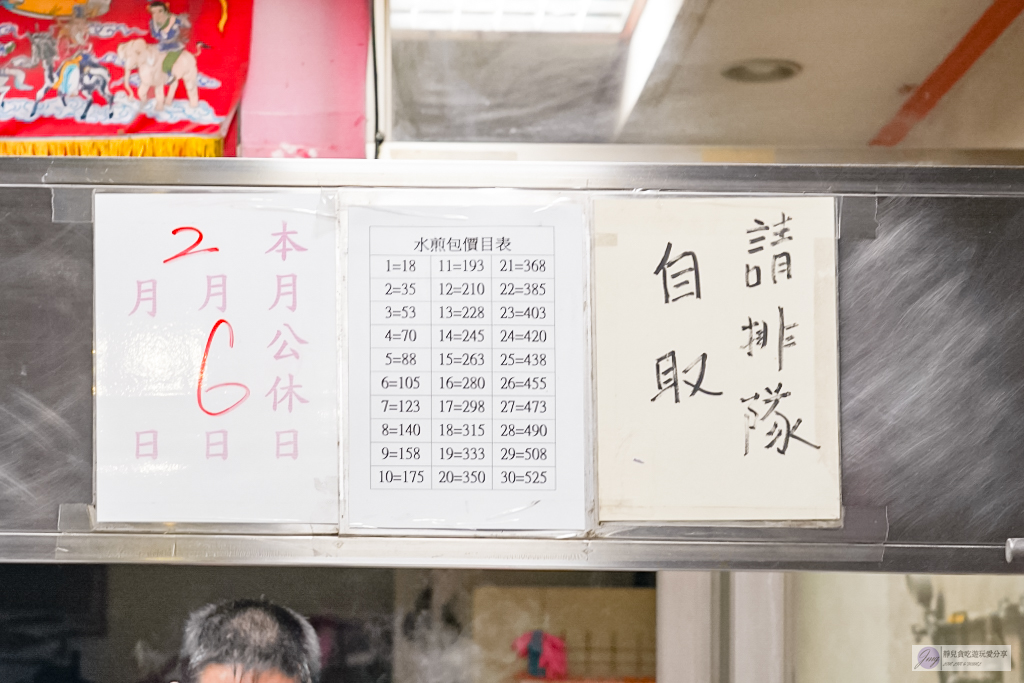 本月公休日
2月6日
月 日
水煎包價目表
1=18 11=193 21=368
2=35 12=210 22=385
3=53 13=228 23=403
4=70 14=245 24=420
5=88 15=263 25=438
6=105 16=280 26=455
7=123 17=298 27=473
8=140 18=315 28=490
9=158 19=333 29=508
10=175 20=350 30=525
請排隊
自取
靜兒貪吃遊玩愛分享